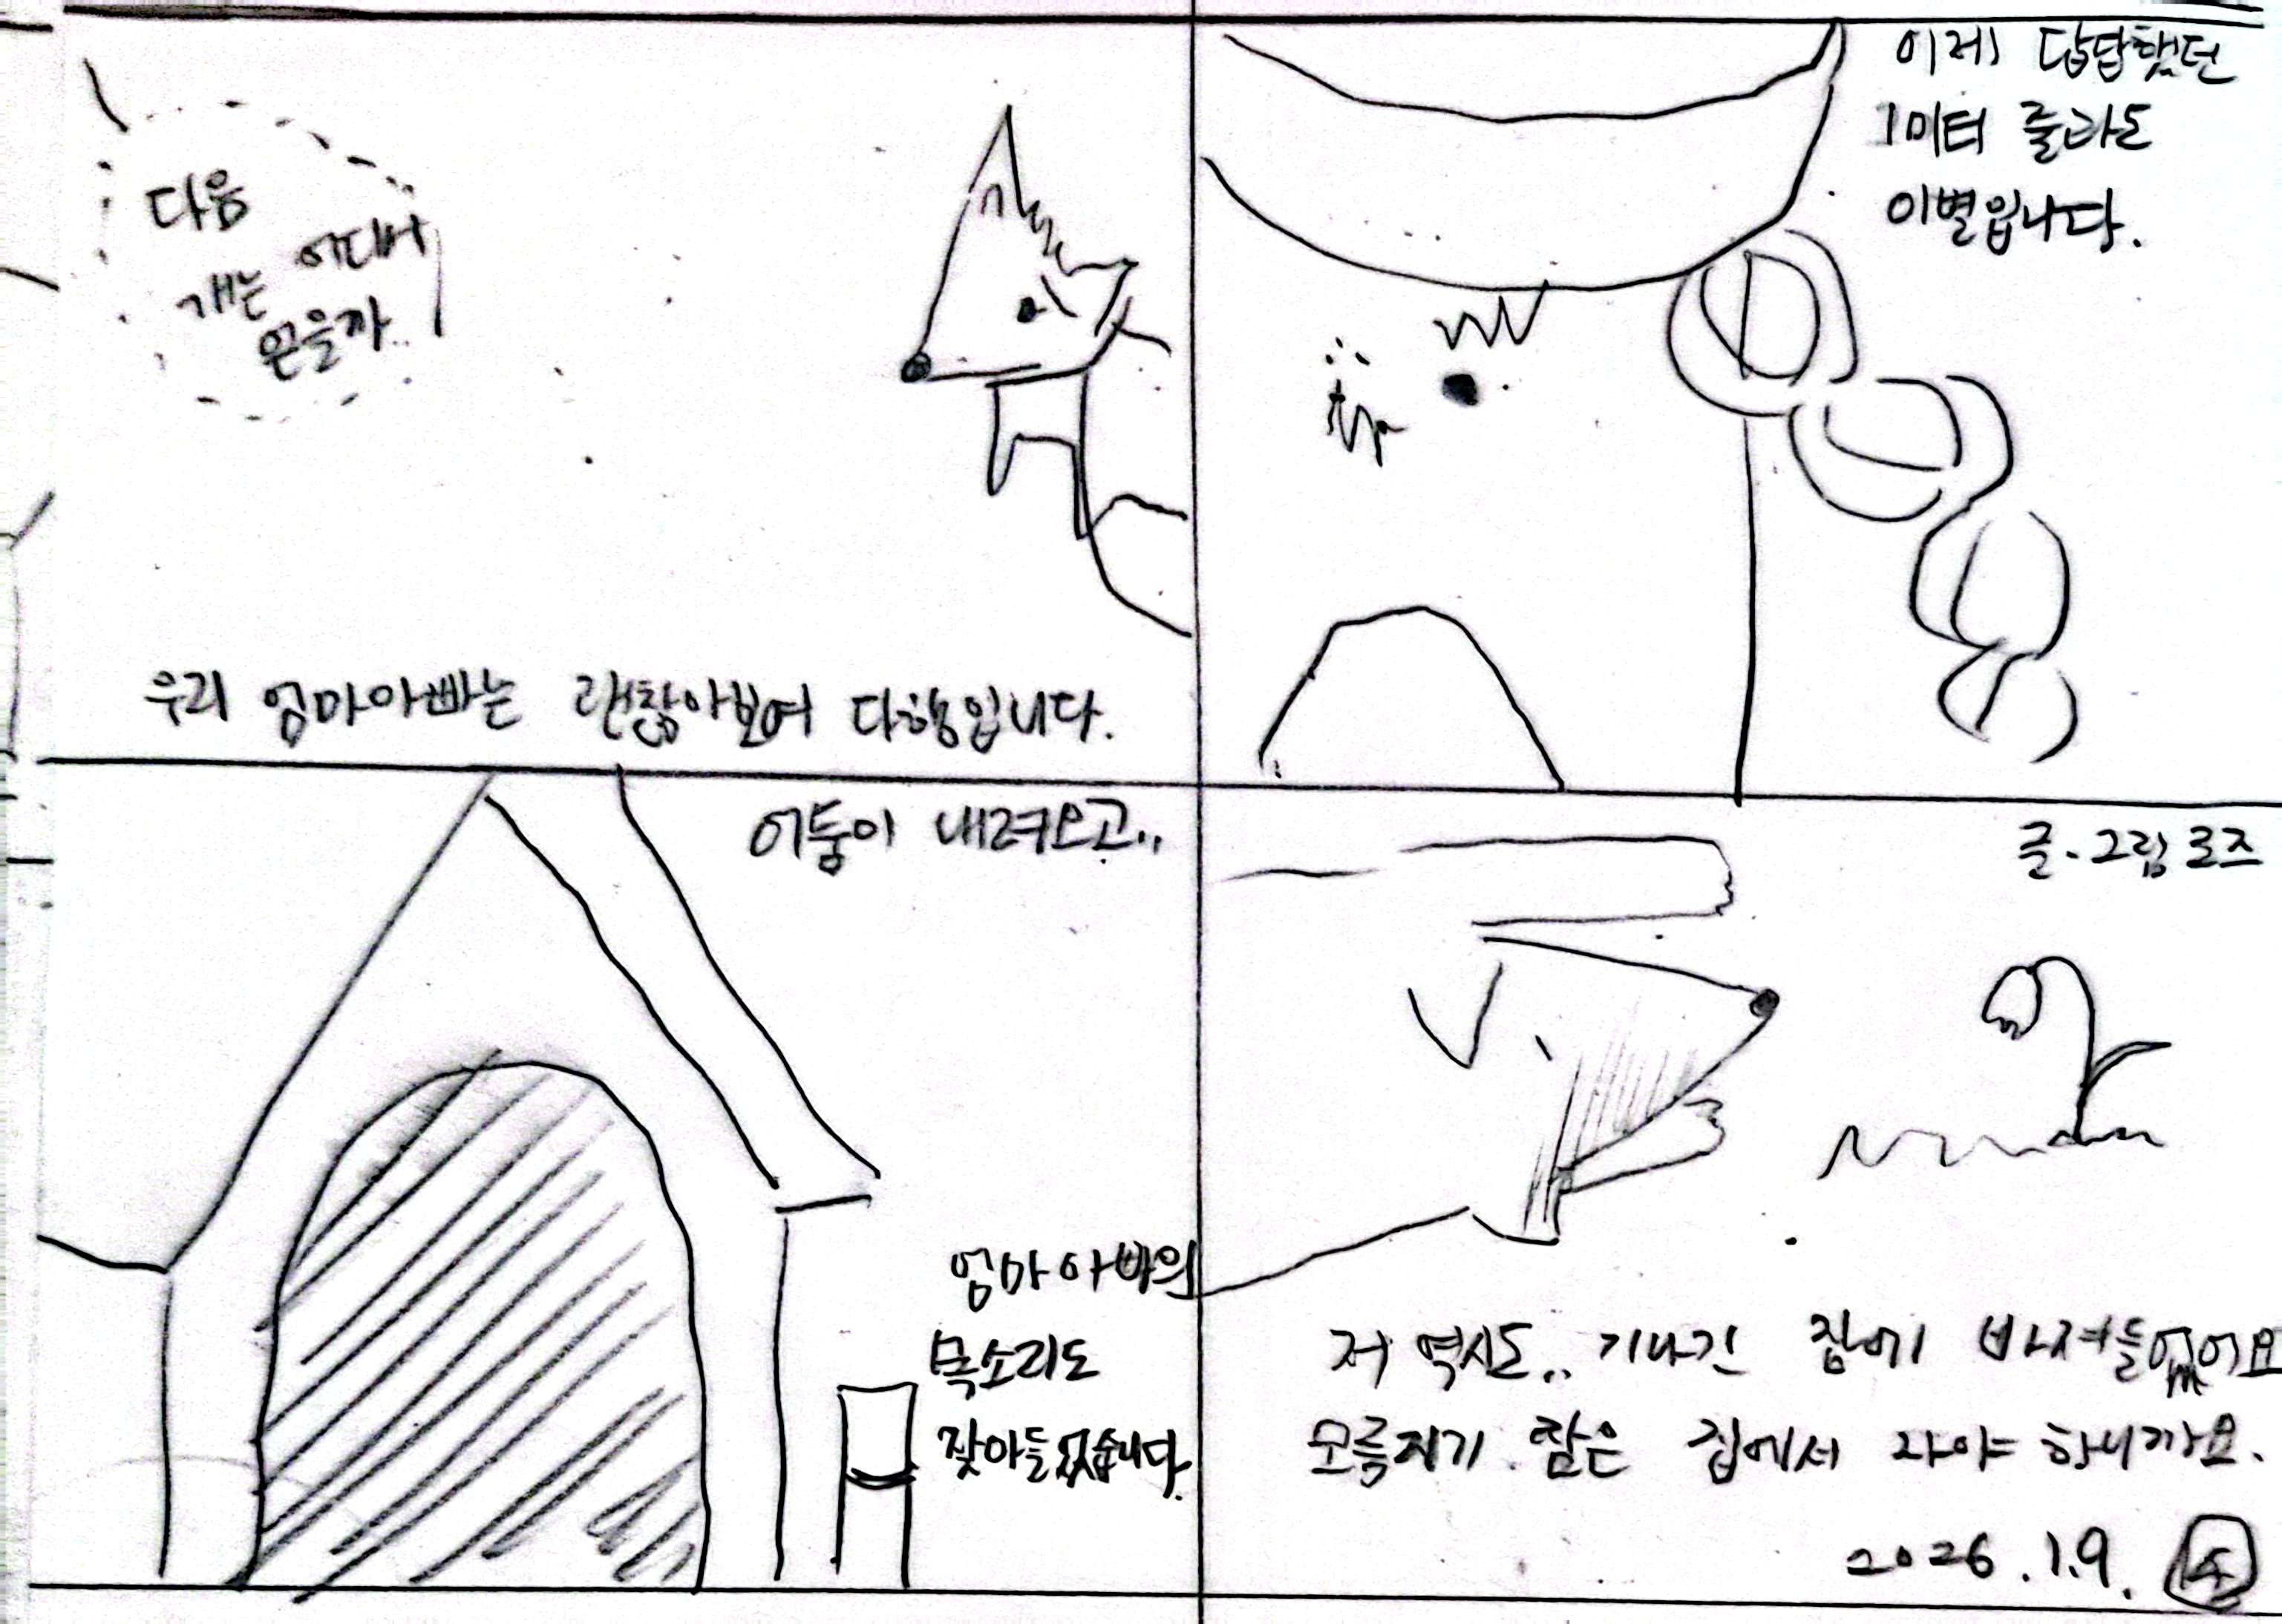 다음
개는 어디서
얻을까..
우리 엄마아빠는 괜찮아보여 다행입니다.
이제 답답했던
1미터 줄과도
이별입니다.
어둠이 내려오고..
엄마아빠의
목소리도
잦아들었습니다.
글.그림 로즈
저 역시도.. 기나긴 잠에 빠져들었어요
모름지기 잠은 집에서 자야 하니까요.
2026.1.9.